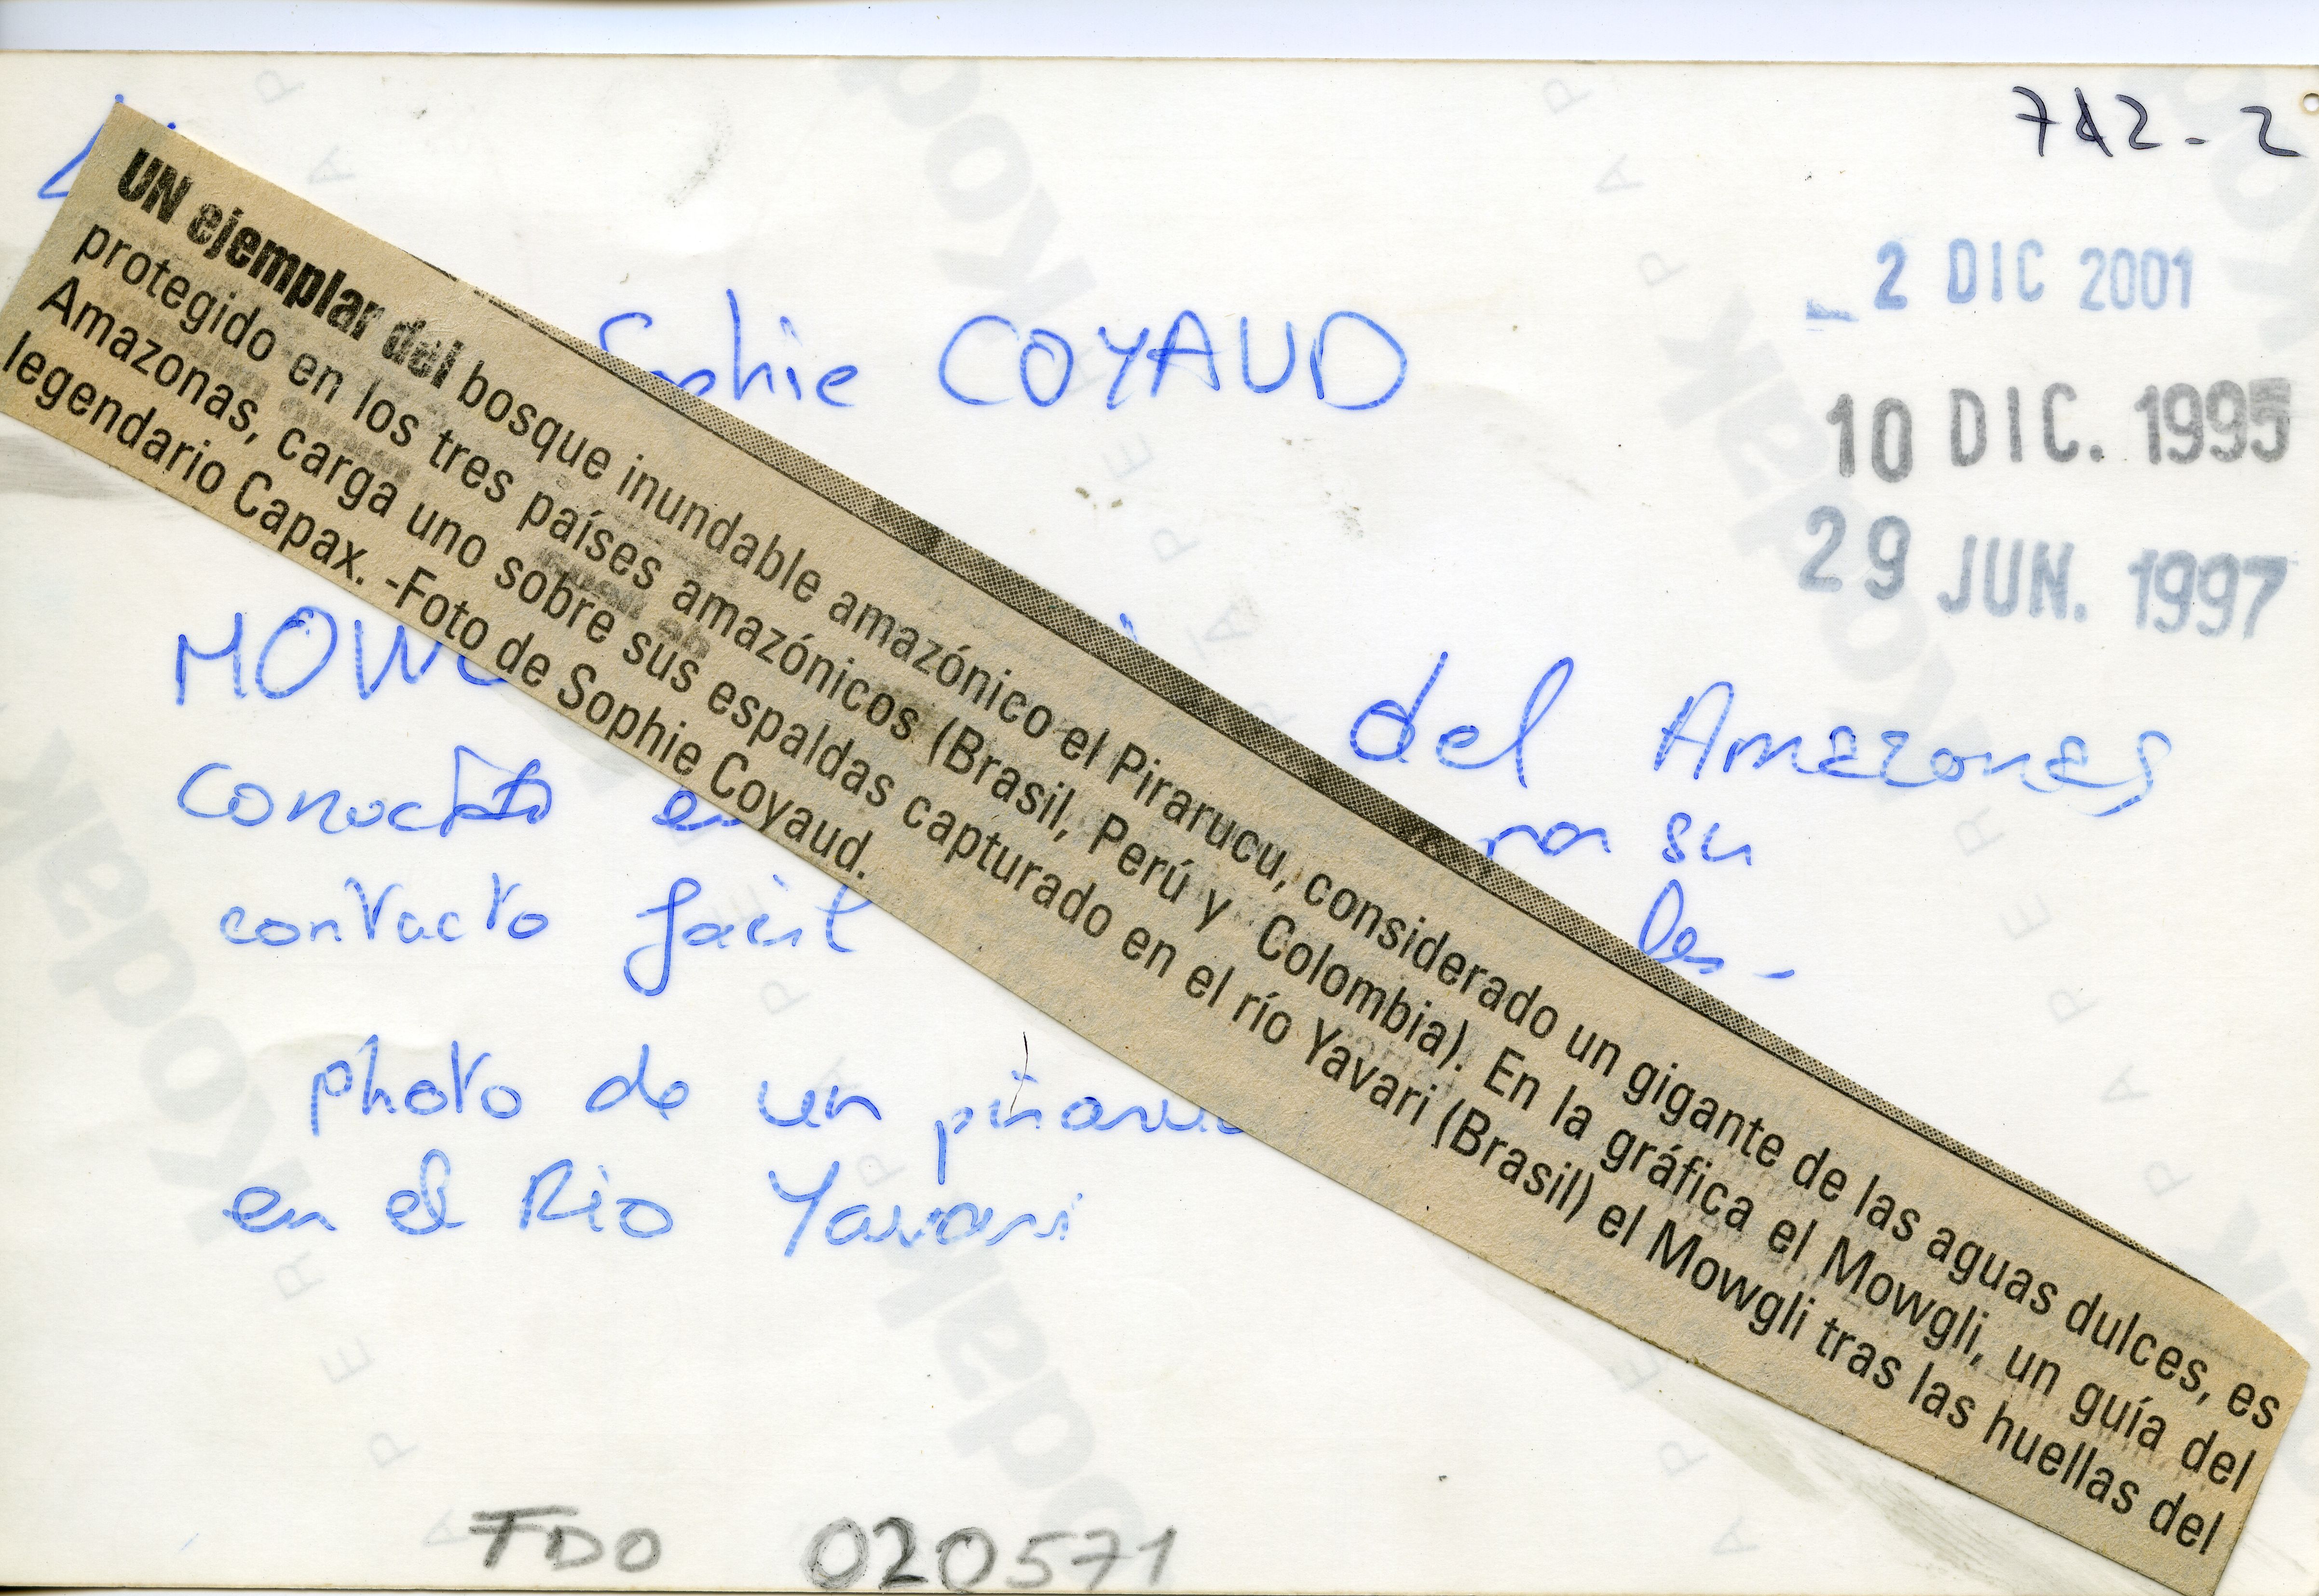 742-2
2 DIC 2001
10 DIC. 1995
29 JUN. 1997
Sophie COYAUD
UN ejemplar del bosque inundable amazónico el Pirarucu, considerado un gigante de las aguas dulces, es
protegido en los tres países amazónicos (Brasil, Perú y Colombia). En la gráfica el Mowgli, un guía del
Amazonas, carga uno sobre sus espaldas capturado en el río Yavari (Brasil) el Mowgli tras las huellas del
legendario Capax. -Foto de Sophie Coyaud.
del Amazonas
por su
contacto facil
photo de un
en el Rio Yavari
TDO 020571
Kodak
PAPER